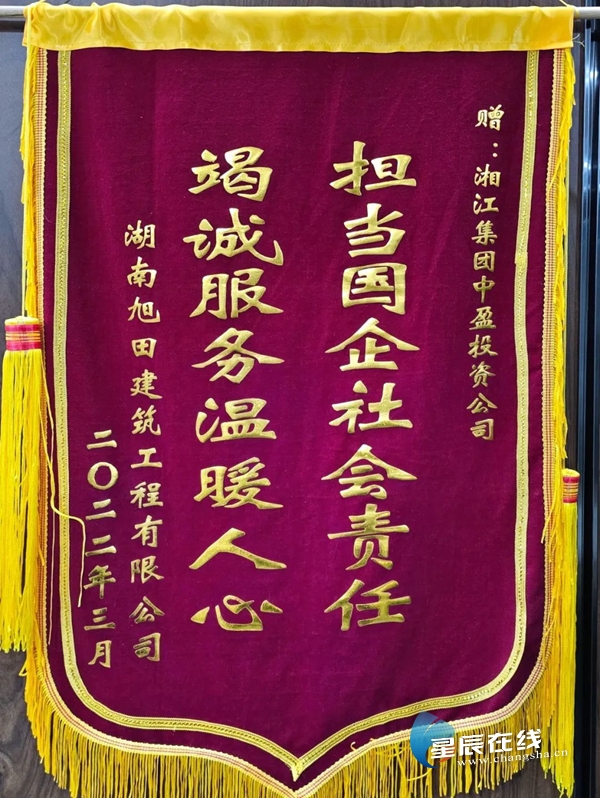 赠：湘江集团中盈投资公司
担当国企社会责任
竭诚服务温暖人心
湖南旭田建筑工程有限公司
二〇二二年三月
星辰在线
www.changsha.cn